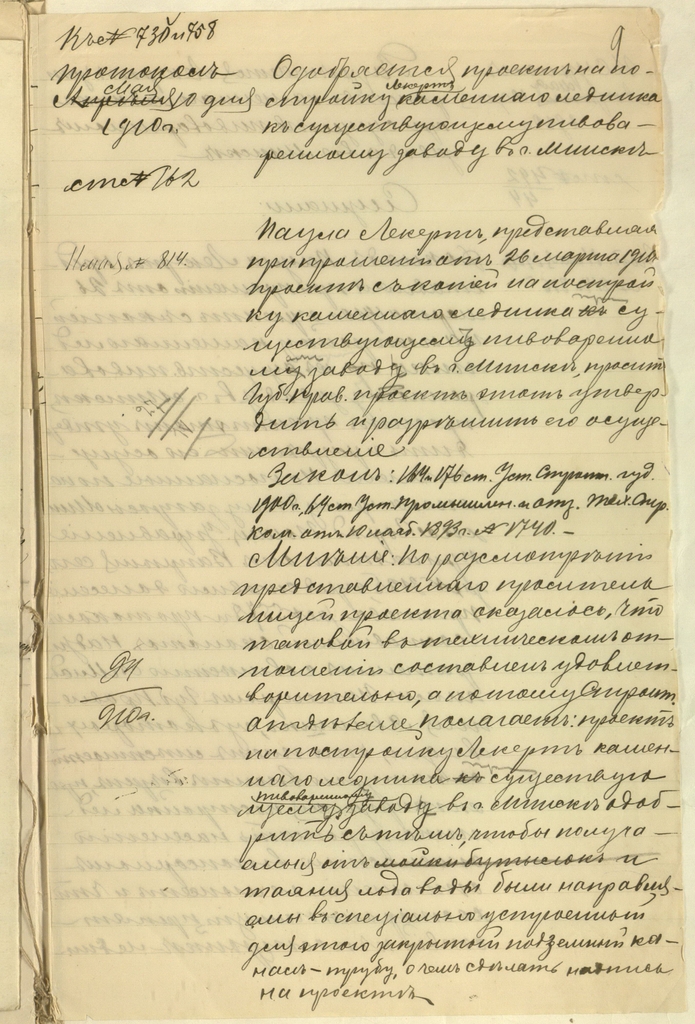 Къ № 730 и 758
протоколъ
мая
Апрѣля 10 дня
1910 г.
ст. № 162
9
Одобряется проектъ на по-
стройку Лекертъ каменнаго ледника
къ существующему пивова-
ренному заводу въ г. Минскѣ
№ 814.
Паула Лекертъ, представляя
при прошеніи отъ 26 марта 1910
проектъ съ копіей на построй-
ку каменнаго ледника къ су-
ществующему пивоваренно-
му заводу въ г. Минскѣ, проситъ
Губ. Прав. проектъ этотъ утвер-
дить и разрѣшить его осуще-
ствленіе
Законъ: 164 и 176 ст. Уст. Строит. изд.
1900 г., 69 ст. Уст. Промышлен. и отз. Тех. Стр.
ком. отъ 10 1893 г. № 1740.-
Мнѣніе: По разсмотрѣніи
представленнаго проситель
ницей проекта оказалось, что
таковой въ техническомъ от-
ношеніи составленъ удовлет-
ворительно, а потому Строит.
отдѣленіе полагаетъ: проектъ
на постройку Лекертъ камен-
94
910 г.
наго ледника къ существую
пивоваренному
щему заводу въ г. Минскѣ одоб-
рить съ тѣмъ, чтобы получа-
емыя отъ мойки бутылокъ и
таянія льда воды были направля-
емы въ спеціально устроенный
для этого закрытый подземный ка-
налъ-трубу, о чемъ сдѣлать надпись
на проектѣ